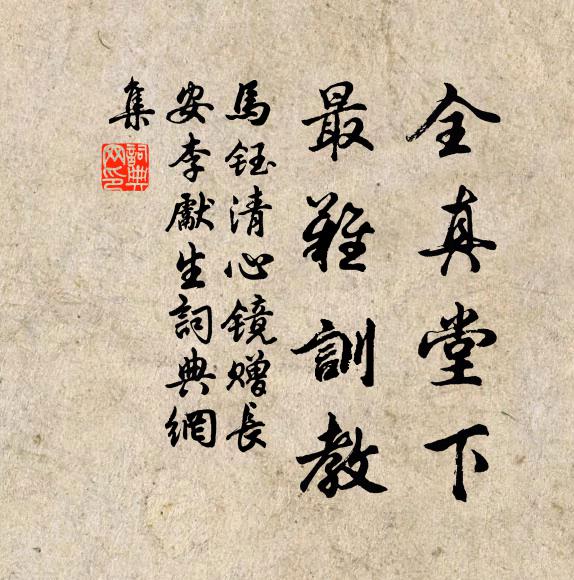 全真堂下
最難訓教
馬鈺清心镜赠長
安李獻生詞典網
集
詞典
网印